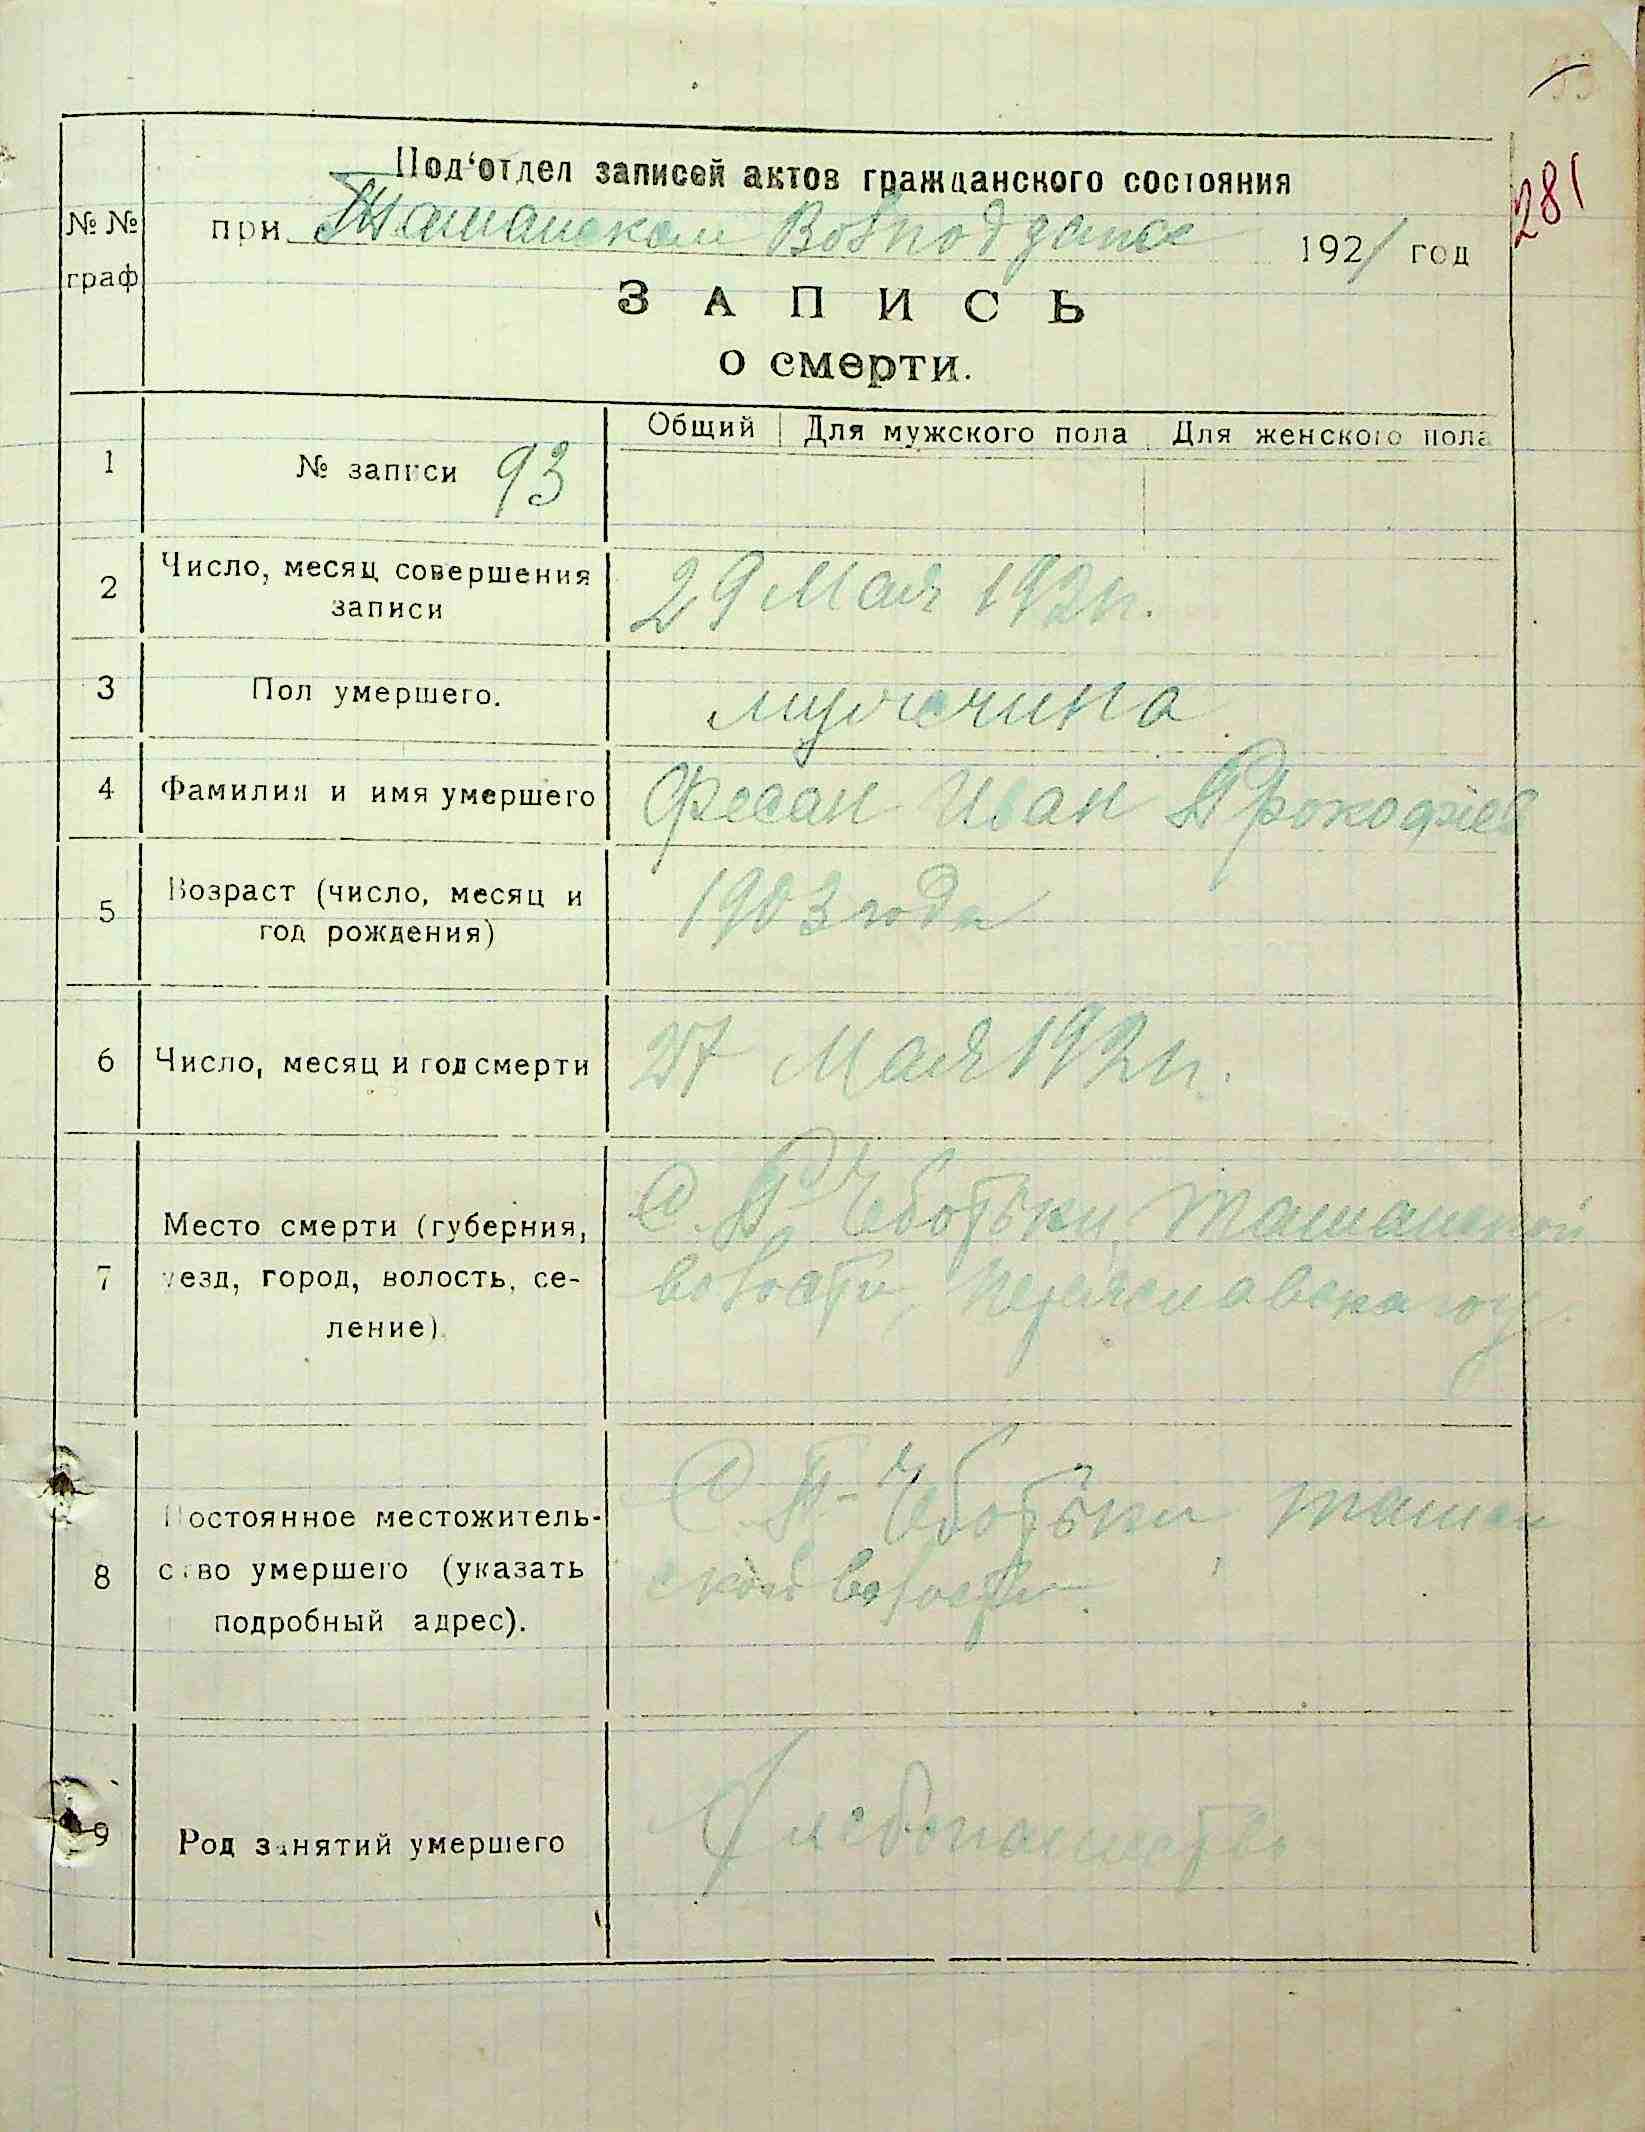 93
281
Под‘отдел записей актов гражданского состояния
№ №
граф
при Ташанском Волподзагсе 1921 год
ЗАПИСЬ
о смерти.
Общий Для мужского пола Для женского пола
1 № записи 93
2 Число, месяц совершения
записи
29 Мая 1921г.
3 Пол умершего. мужчина
4 Фамилия и имя умершего Фесан Иван Прокофиев
5 Возраст (число, месяц и
год рождения)
1903 года
6 Число, месяц и год смерти 27 Мая 1921г.
7 Место смерти (губерния,
уезд, город, волость, се-
ление)
С. П-Чоботьки, Ташанской
волости, Переяславского у.
8 Постоянное местожитель-
ство умершего (указать
подробный адрес).
С. П-Чоботьки, Ташан
ской волости.
9 Род занятий умершего Хлебопашество